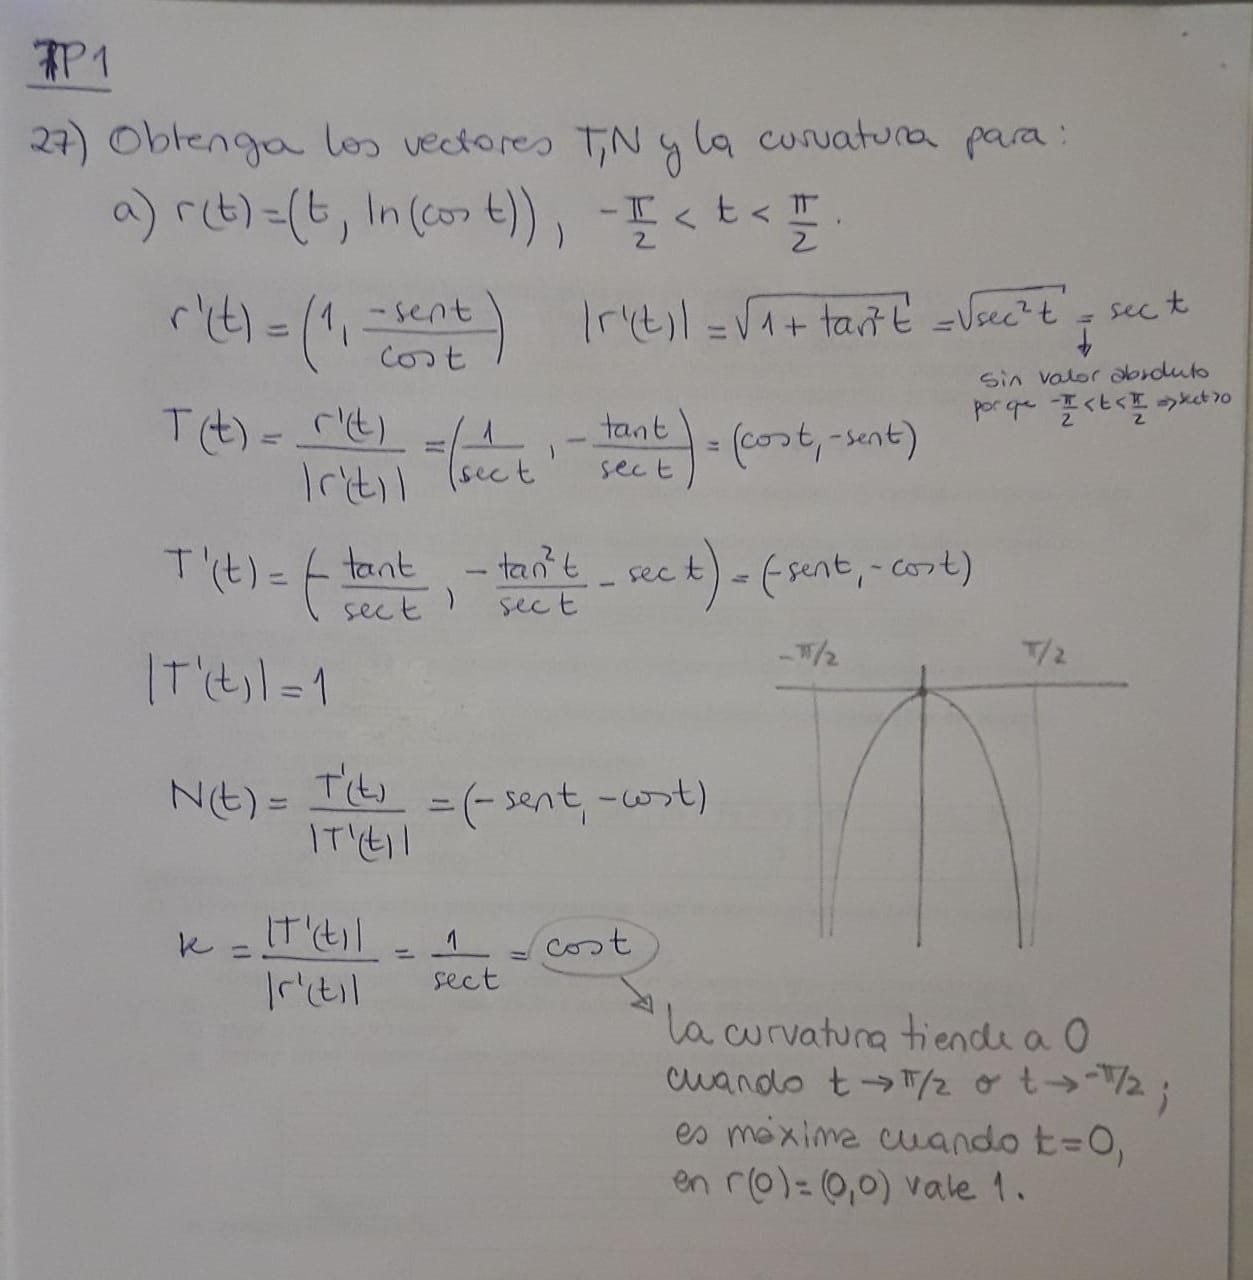 TP1
27) Obtenga los vectores T,N y la curvatura para:
a) r(t)=(t, ln(cos t)), -π/2 < t < π/2.
r'(t) = (1, -sent/cost) |r'(t)| = √(1+tan²t) = √(sec²t) = sec t
↓
sin valor absoluto
porque -π/2 <t< π/2 ⇒ sect>0
T(t) = r'(t)/|r'(t)| = (1/sec t, - tant/sec t) = (cost, -sent)
T'(t) = (- tant/sec t, - tan²t/sec t - sec t) = (-sent, -cost)
-π/2 π/2
|T'(t)| = 1
N(t) = T'(t)/|T'(t)| = (-sent, -cost)
k = |T'(t)|/|r'(t)| = 1/sect = cost
la curvatura tiende a 0
cuando t → π/2 o t → -π/2;
es máxima cuando t=0,
en r(0)=(0,0) vale 1.